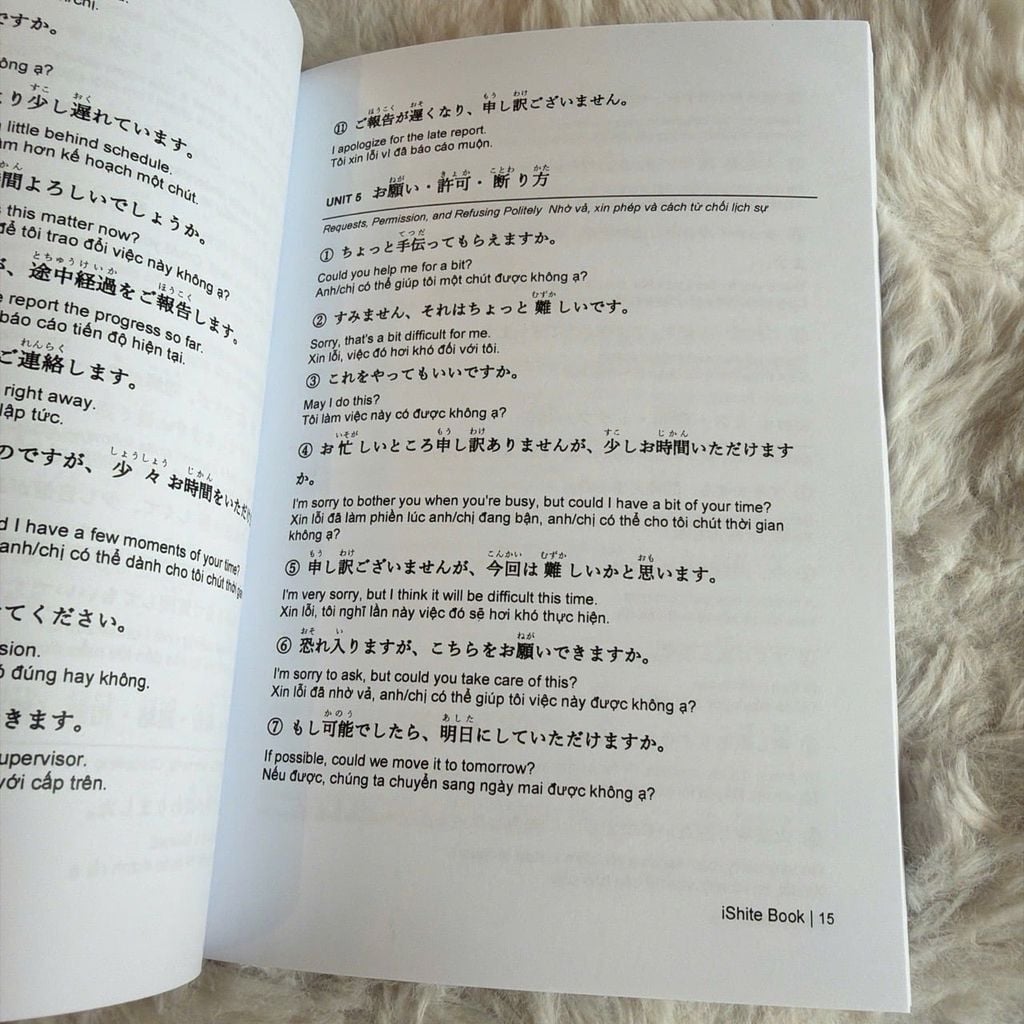 ですか。
ông ạ?
り少し遅れています。
little behind schedule.
hơn kế hoạch một chút.
間よろしいでしょうか。
this matter now?
để tôi trao đổi việc này không ạ?
、途中経過をご報告します。
report the progress so far.
báo cáo tiến độ hiện tại.
ご連絡します。
right away.
lập tức.
のですが、少々お時間をいただけ
I have a few moments of your time?
anh/chị có thể dành cho tôi chút thời
てください。
sion.
đúng hay không.
きます。
upervisor.
với cấp trên.
⑪ ご報告が遅くなり、申し訳ございません。
I apologize for the late report.
Tôi xin lỗi vì đã báo cáo muộn.
UNIT 5 お願い・許可・断り方
Requests, Permission, and Refusing Politely Nhờ vả, xin phép và cách từ chối lịch sự
① ちょっと手伝ってもらえますか。
Could you help me for a bit?
Anh/chị có thể giúp tôi một chút được không ạ?
② すみません、それはちょっと難しいです。
Sorry, that's a bit difficult for me.
Xin lỗi, việc đó hơi khó đối với tôi.
③ これをやってもいいですか。
May I do this?
Tôi làm việc này có được không ạ?
④ お忙しいところ申し訳ありませんが、少しお時間いただけます
か。
I'm sorry to bother you when you're busy, but could I have a bit of your time?
Xin lỗi đã làm phiền lúc anh/chị đang bận, anh/chị có thể cho tôi chút thời gian
không ạ?
⑤ 申し訳ございませんが、今回は難しいかと思います。
I'm very sorry, but I think it will be difficult this time.
Xin lỗi, tôi nghĩ lần này việc đó sẽ hơi khó thực hiện.
⑥ 恐れ入りますが、こちらをお願いできますか。
I'm sorry to ask, but could you take care of this?
Xin lỗi đã nhờ vả, anh/chị có thể giúp tôi việc này được không ạ?
⑦ もし可能でしたら、明日にしていただけますか。
If possible, could we move it to tomorrow?
Nếu được, chúng ta chuyển sang ngày mai được không ạ?
iShite Book | 15